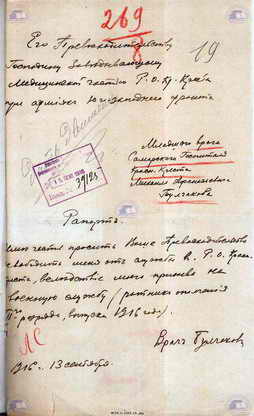 269
8
19
Его Превосходительству
Господину Заведывающему
Медицинской частью Р. О. Кр. Креста
при армиях Юго-Западного фронта
Младшего врача
Самарского Госпиталя
Красн. Креста
Михаила Афанасьевича
Булгакова
39195
Рапорт.
Имею честь просить Ваше Превосходительство
освободить меня от службы в Р. О. Красн.
Креста, вследствие моего призыва на
военную службу (ратник ополчения
IIго разряда, выпуска 1916 года).
Врач Булгаков
1916 г. 13 сентября.